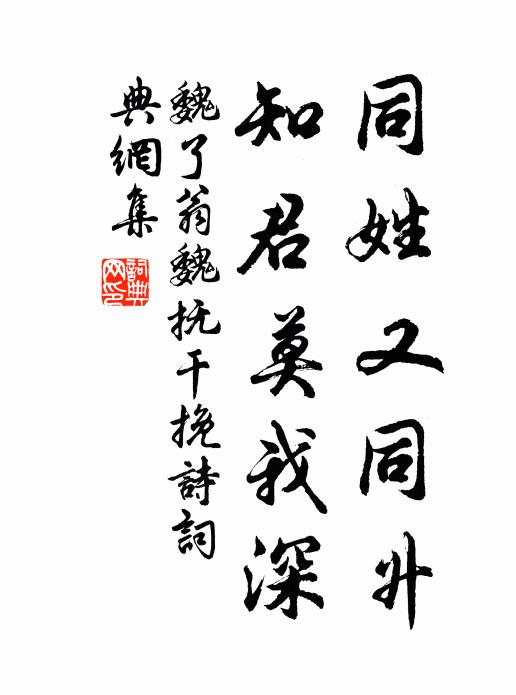 同姓又同升
知君莫我深
魏了翁魏抚干挽詩詞
典網集
詞典
网印